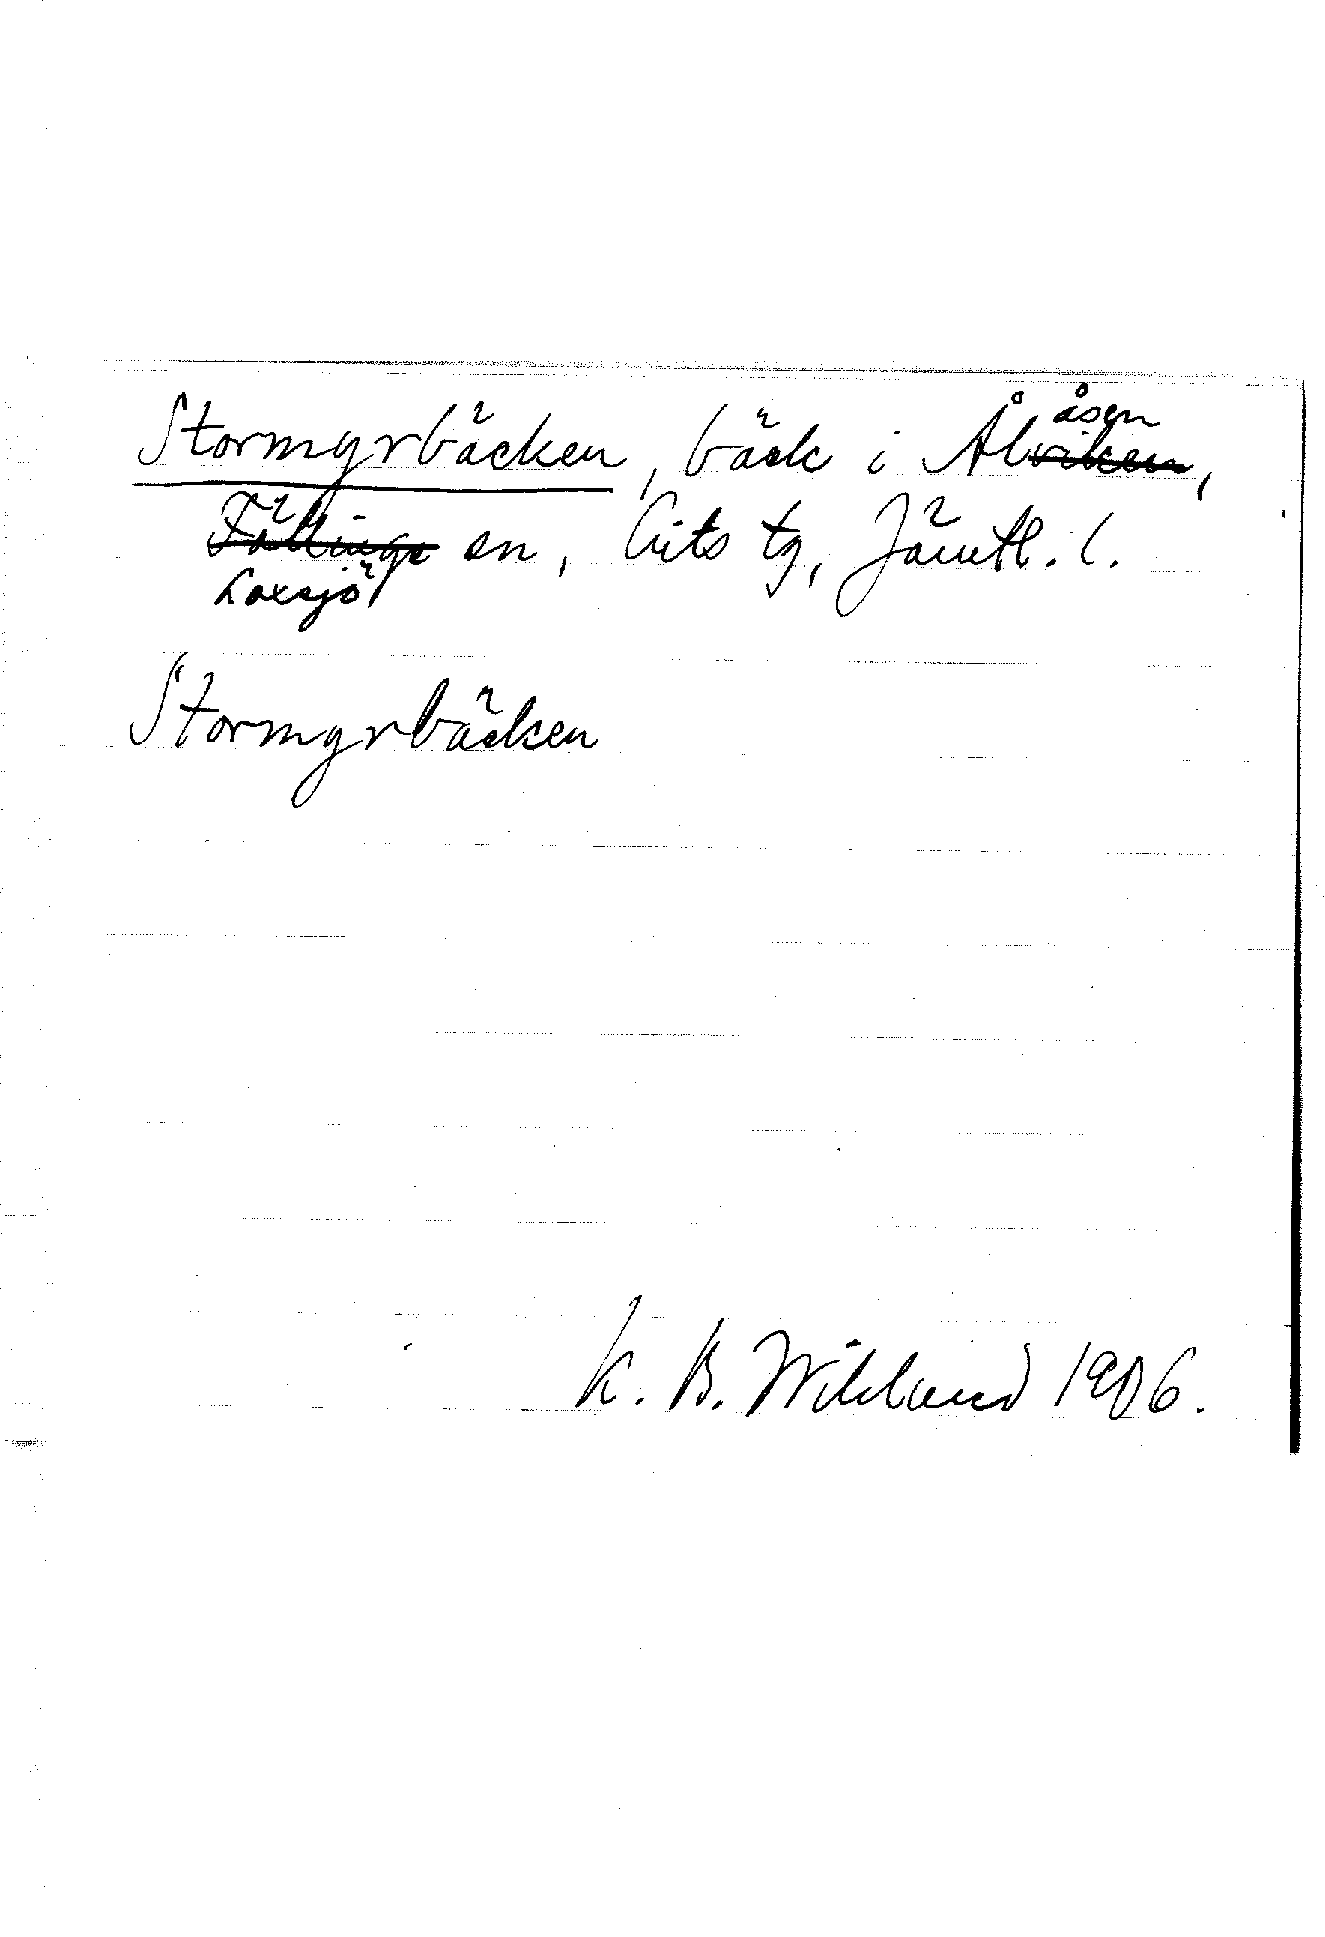 Stormyrbäcken, bäck i Ålåsen,
Laxsjö sn, Lits tg, Jämtl. l.
Stormyrbäcken
K. B. Wiklund 1906.